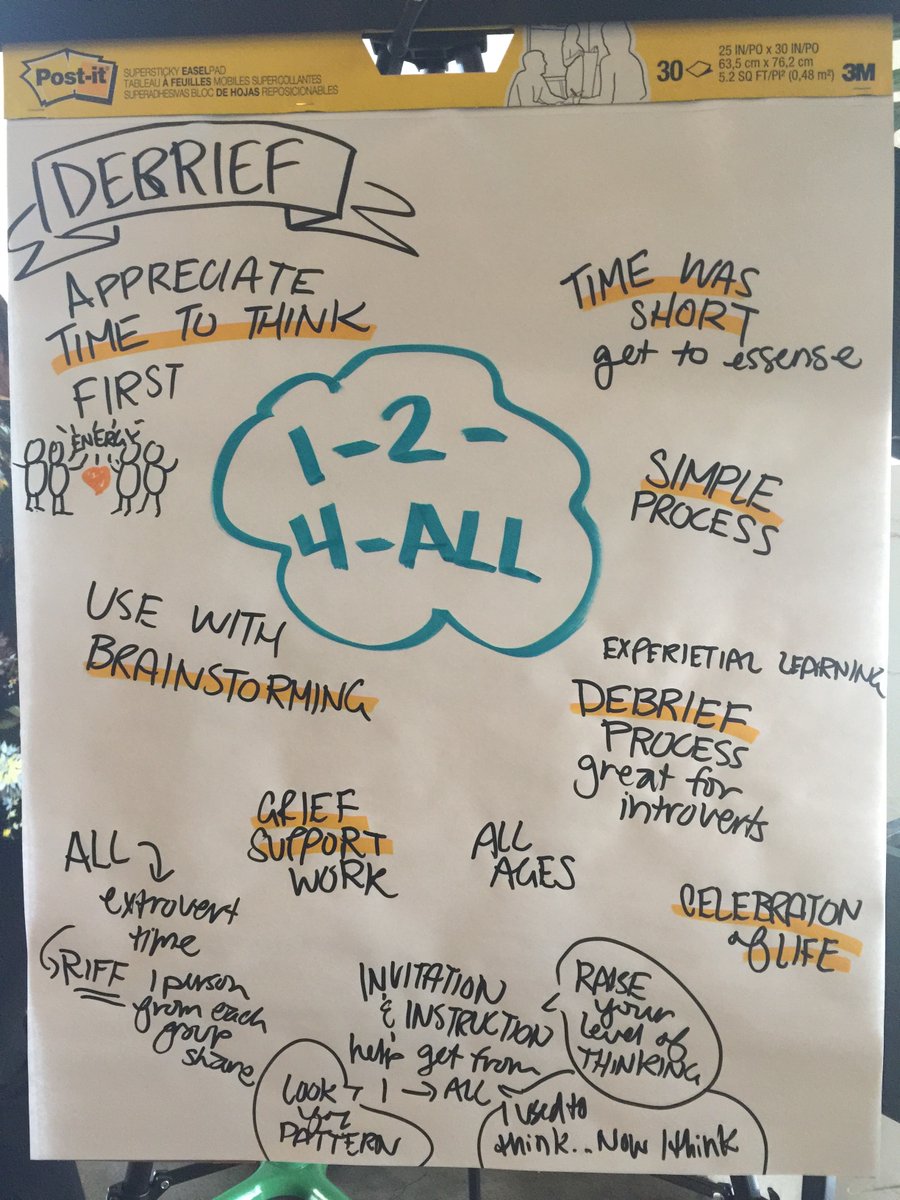 Post-it
SUPERSTICKY EASEL PAD
TABLEAU À FEUILLES MOBILES SUPERCOLLANTES
SUPERADHESIVAS BLOC DE HOJAS REPOSICIONABLES
30
25 IN/PO x 30 IN/PO
63,5 cm x 76,2 cm
5.2 SQ FT/PI² (0,48 m²)
3M
DEBRIEF
APPRECIATE
TIME TO THINK
FIRST
ENERGY
TIME WAS
SHORT
get to essense
1-2-
4-ALL
SIMPLE
PROCESS
USE WITH
BRAINSTORMING
EXPERIETIAL LEARNING
DEBRIEF
PROCESS
great for
introverts
GRIEF
SUPPORT
WORK
ALL
AGES
CELEBRATON
of LIFE
ALL
extrovert
time
RIFF
1 person
from each
group
share
INVITATION
& INSTRUCTION
help get from
1 → ALL
RAISE
your
level of
THINKING
LOOK
for
PATTERN
I used to
think.. Now I think